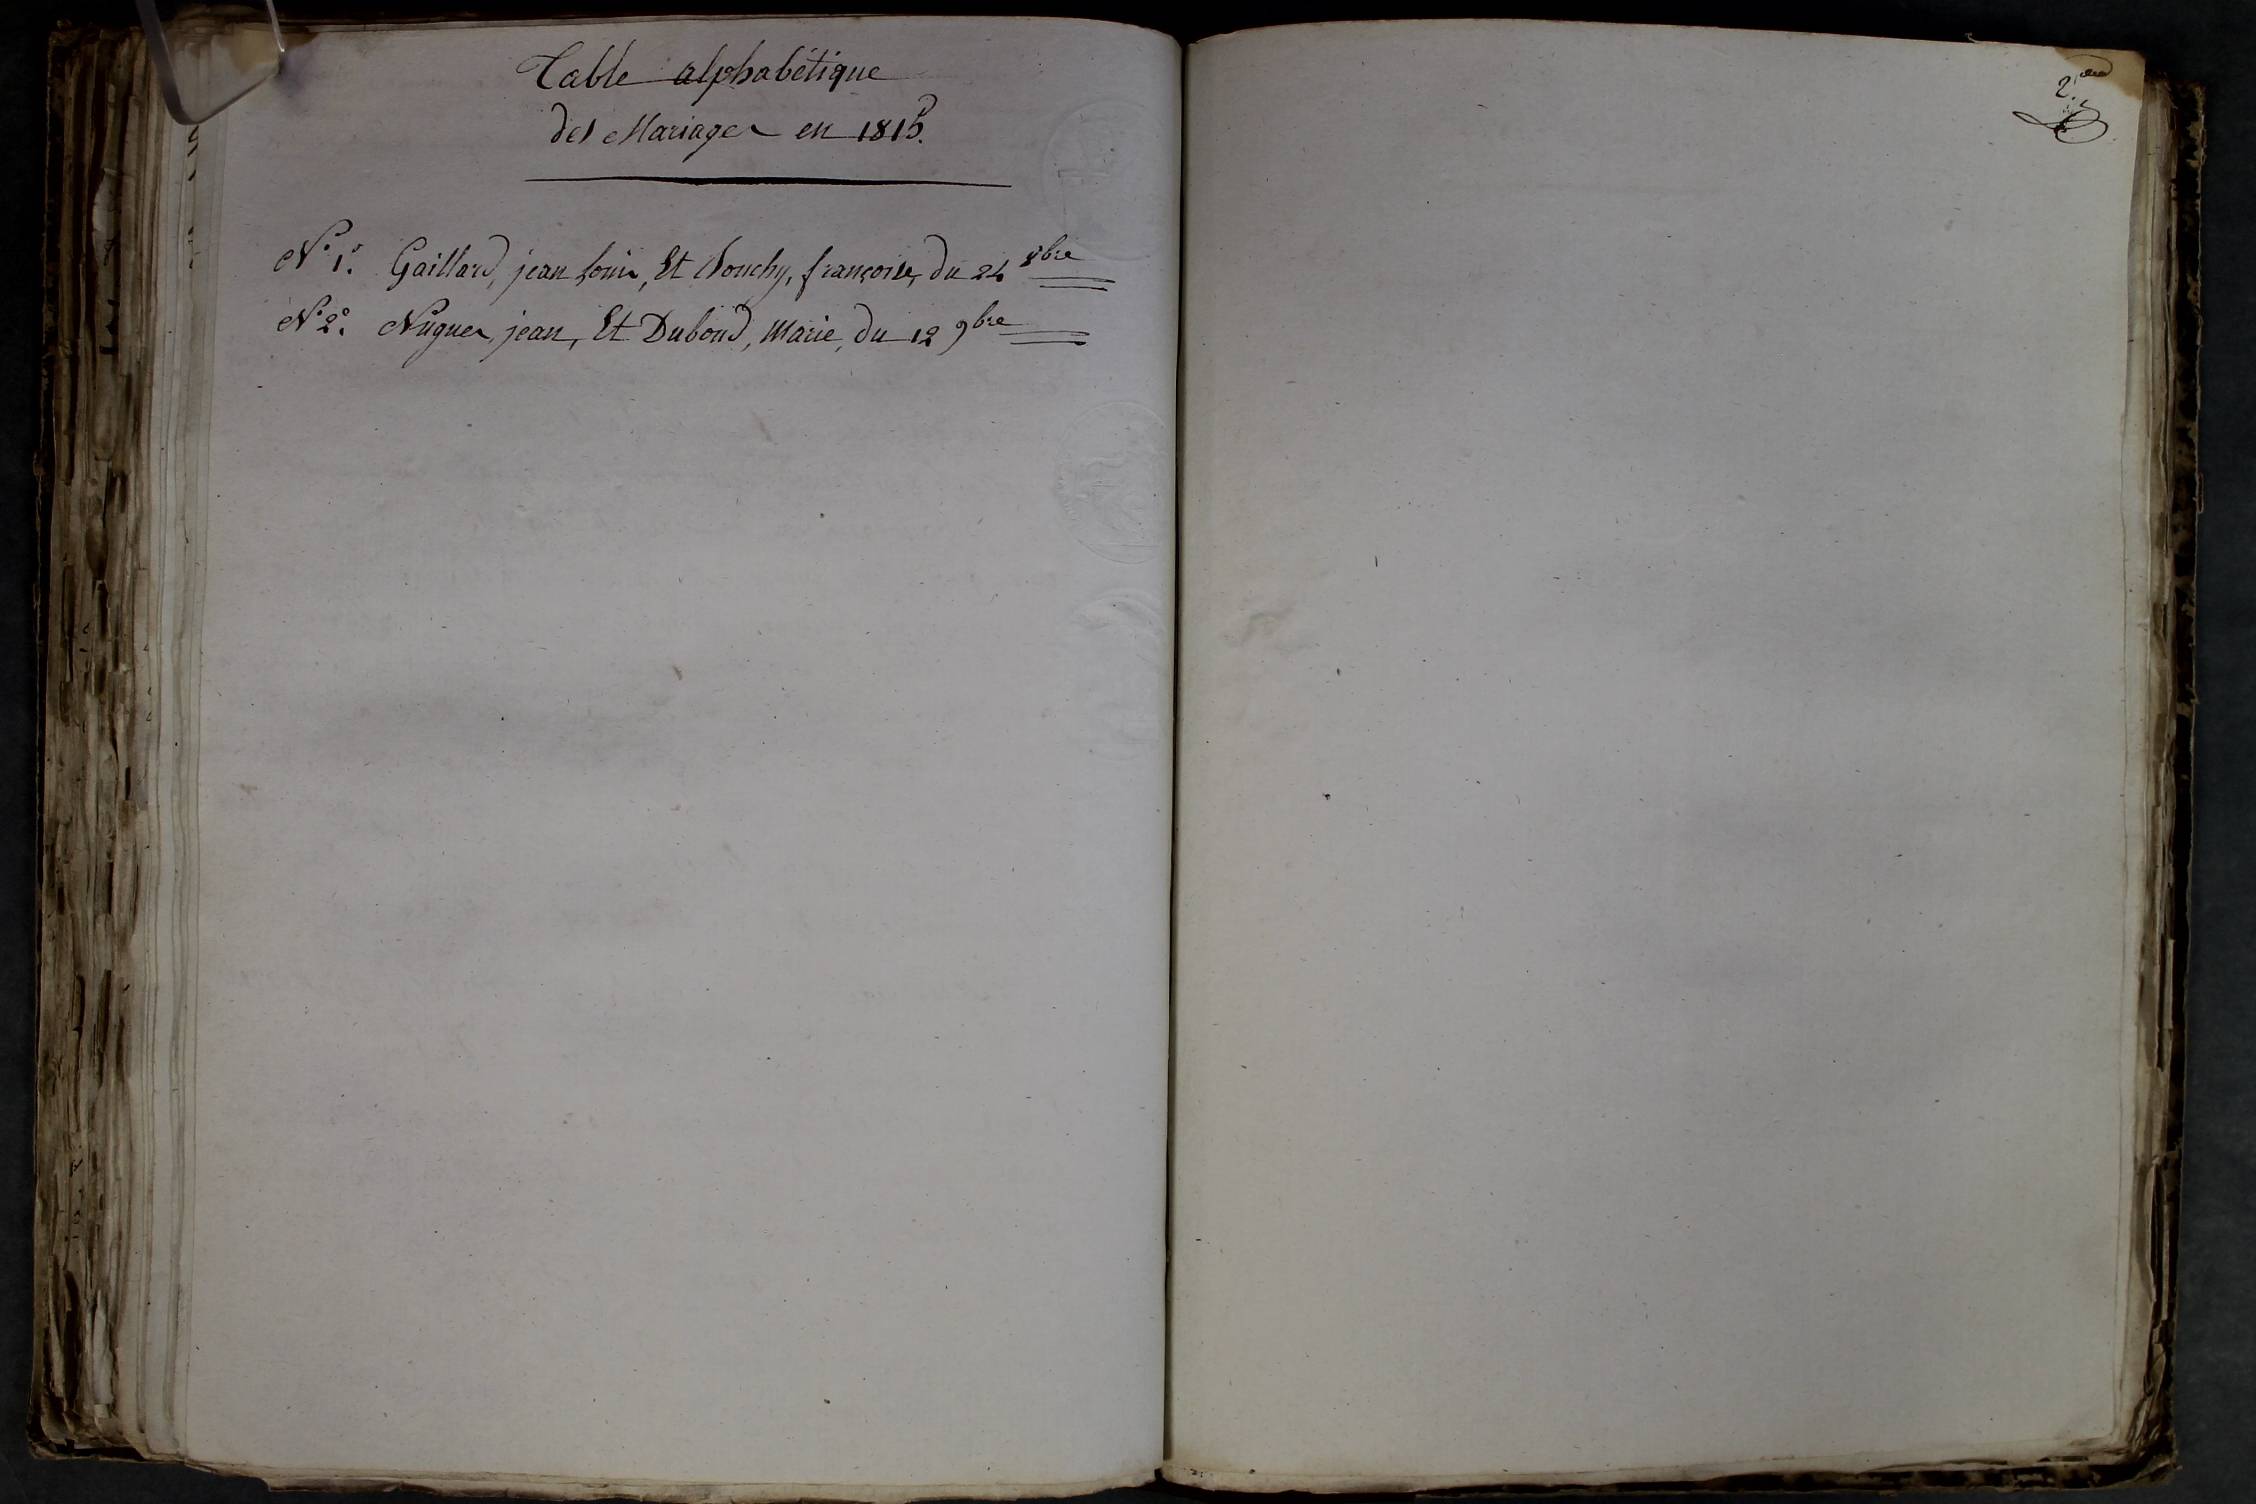 Table alphabétique
des Mariages en 1815.
N.º 1.º Gaillard, jean Louis, Et Bouchy, françoise, du 24 8bre
N.º 2.º Nugues jean, Et Duboud, Marie, du 12 9bre
2.